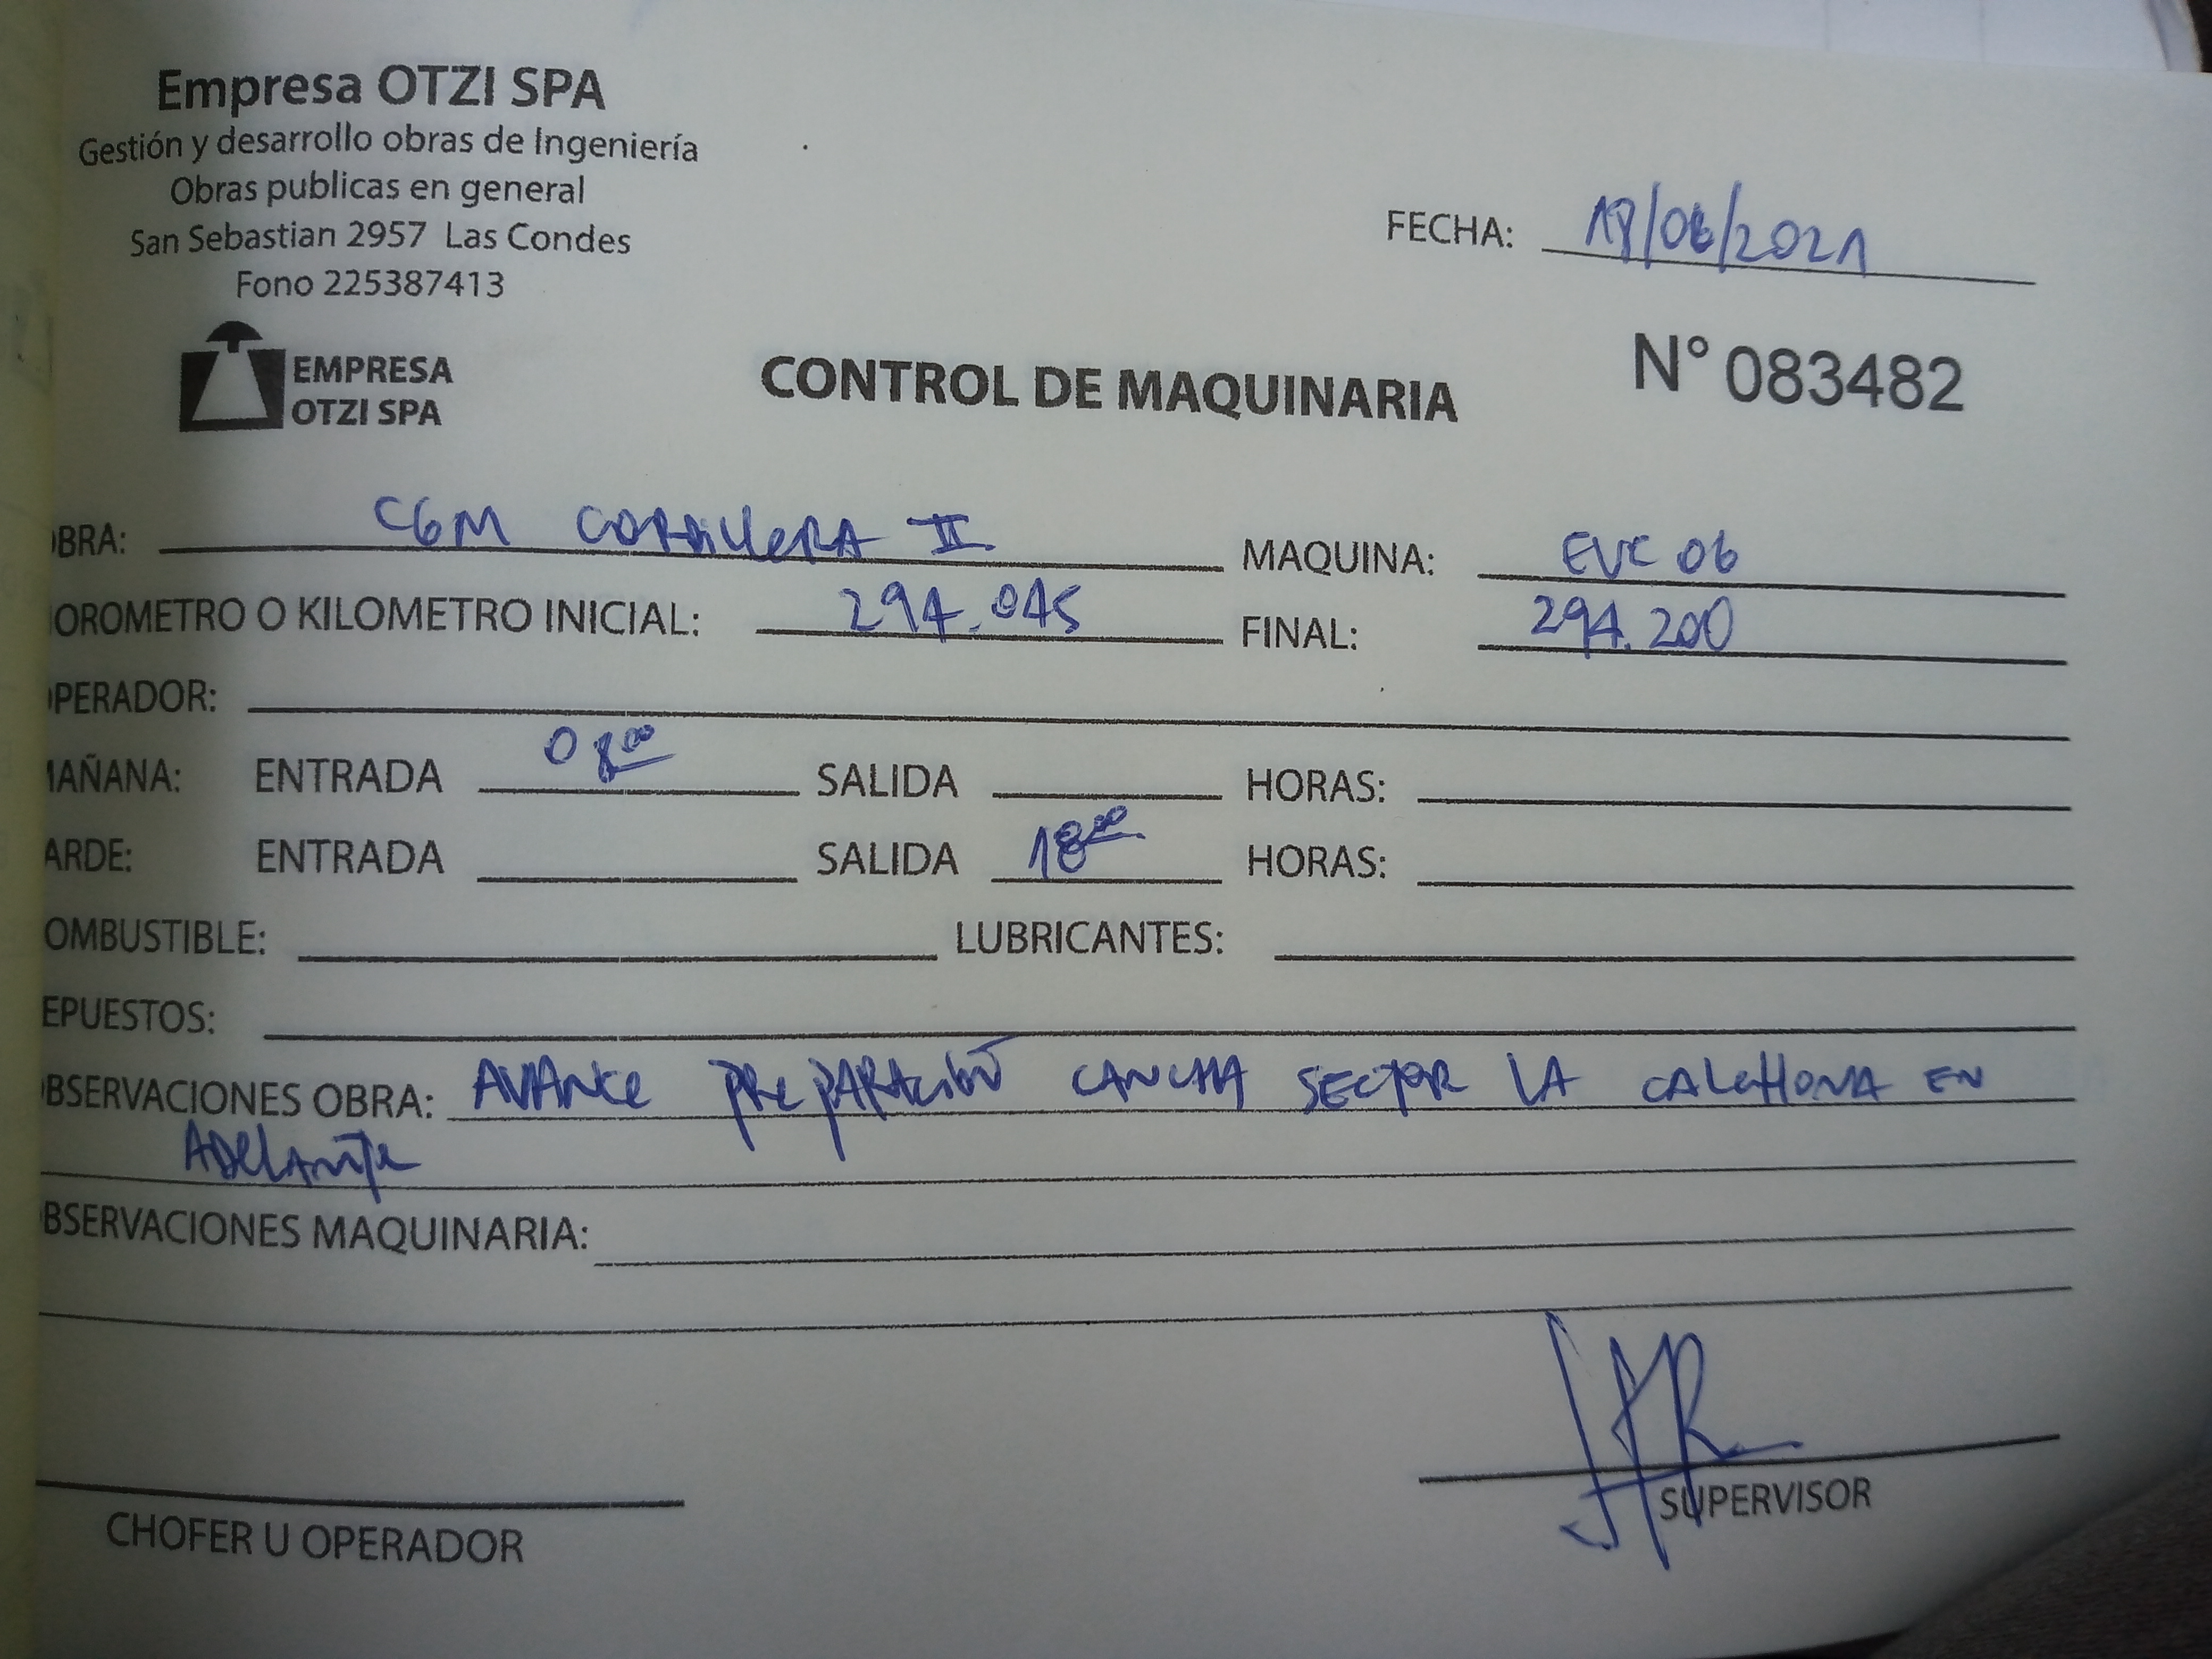 Empresa OTZI SPA
Gestión y desarrollo obras de Ingeniería
Obras publicas en general
San Sebastian 2957 Las Condes
Fono 225387413
FECHA: 18/06/2021
EMPRESA
OTZI SPA
CONTROL DE MAQUINARIA
N° 083482
BRA: CGM CORDILLERA II MAQUINA: EVC 06
OROMETRO O KILOMETRO INICIAL: 294.045 FINAL: 294.200
PERADOR:
AÑANA: ENTRADA 08 00 SALIDA HORAS:
ARDE: ENTRADA SALIDA 18 00 HORAS:
OMBUSTIBLE: LUBRICANTES:
EPUESTOS:
BSERVACIONES OBRA: AVANCE PREPARACIÓN CANCHA SECTOR LA CALCHONA EN
ADELANTE
BSERVACIONES MAQUINARIA:
CHOFER U OPERADOR
SUPERVISOR